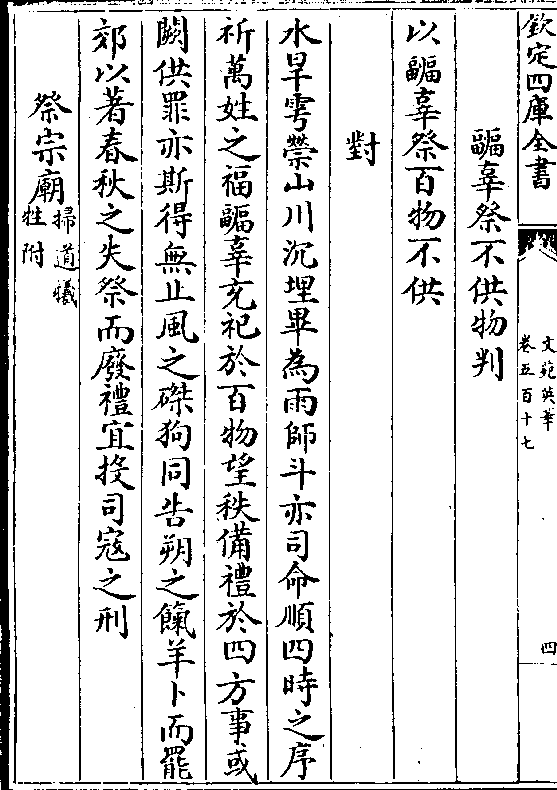 欽定四庫全書
文苑英華
卷五百十七
四
疈辜祭不供物判
以疈辜祭百物不供
對
水旱雩禜山川沉埋畢為雨師斗亦司命順四時之序
祈萬姓之福疈辜充祀於百物望秩備禮於四方事或
闕供罪亦斯得無止風之磔狗同告朔之餼羊卜而罷
郊以著春秋之失祭而廢禮宜投司寇之刑
祭宗廟掃道犧
牲附